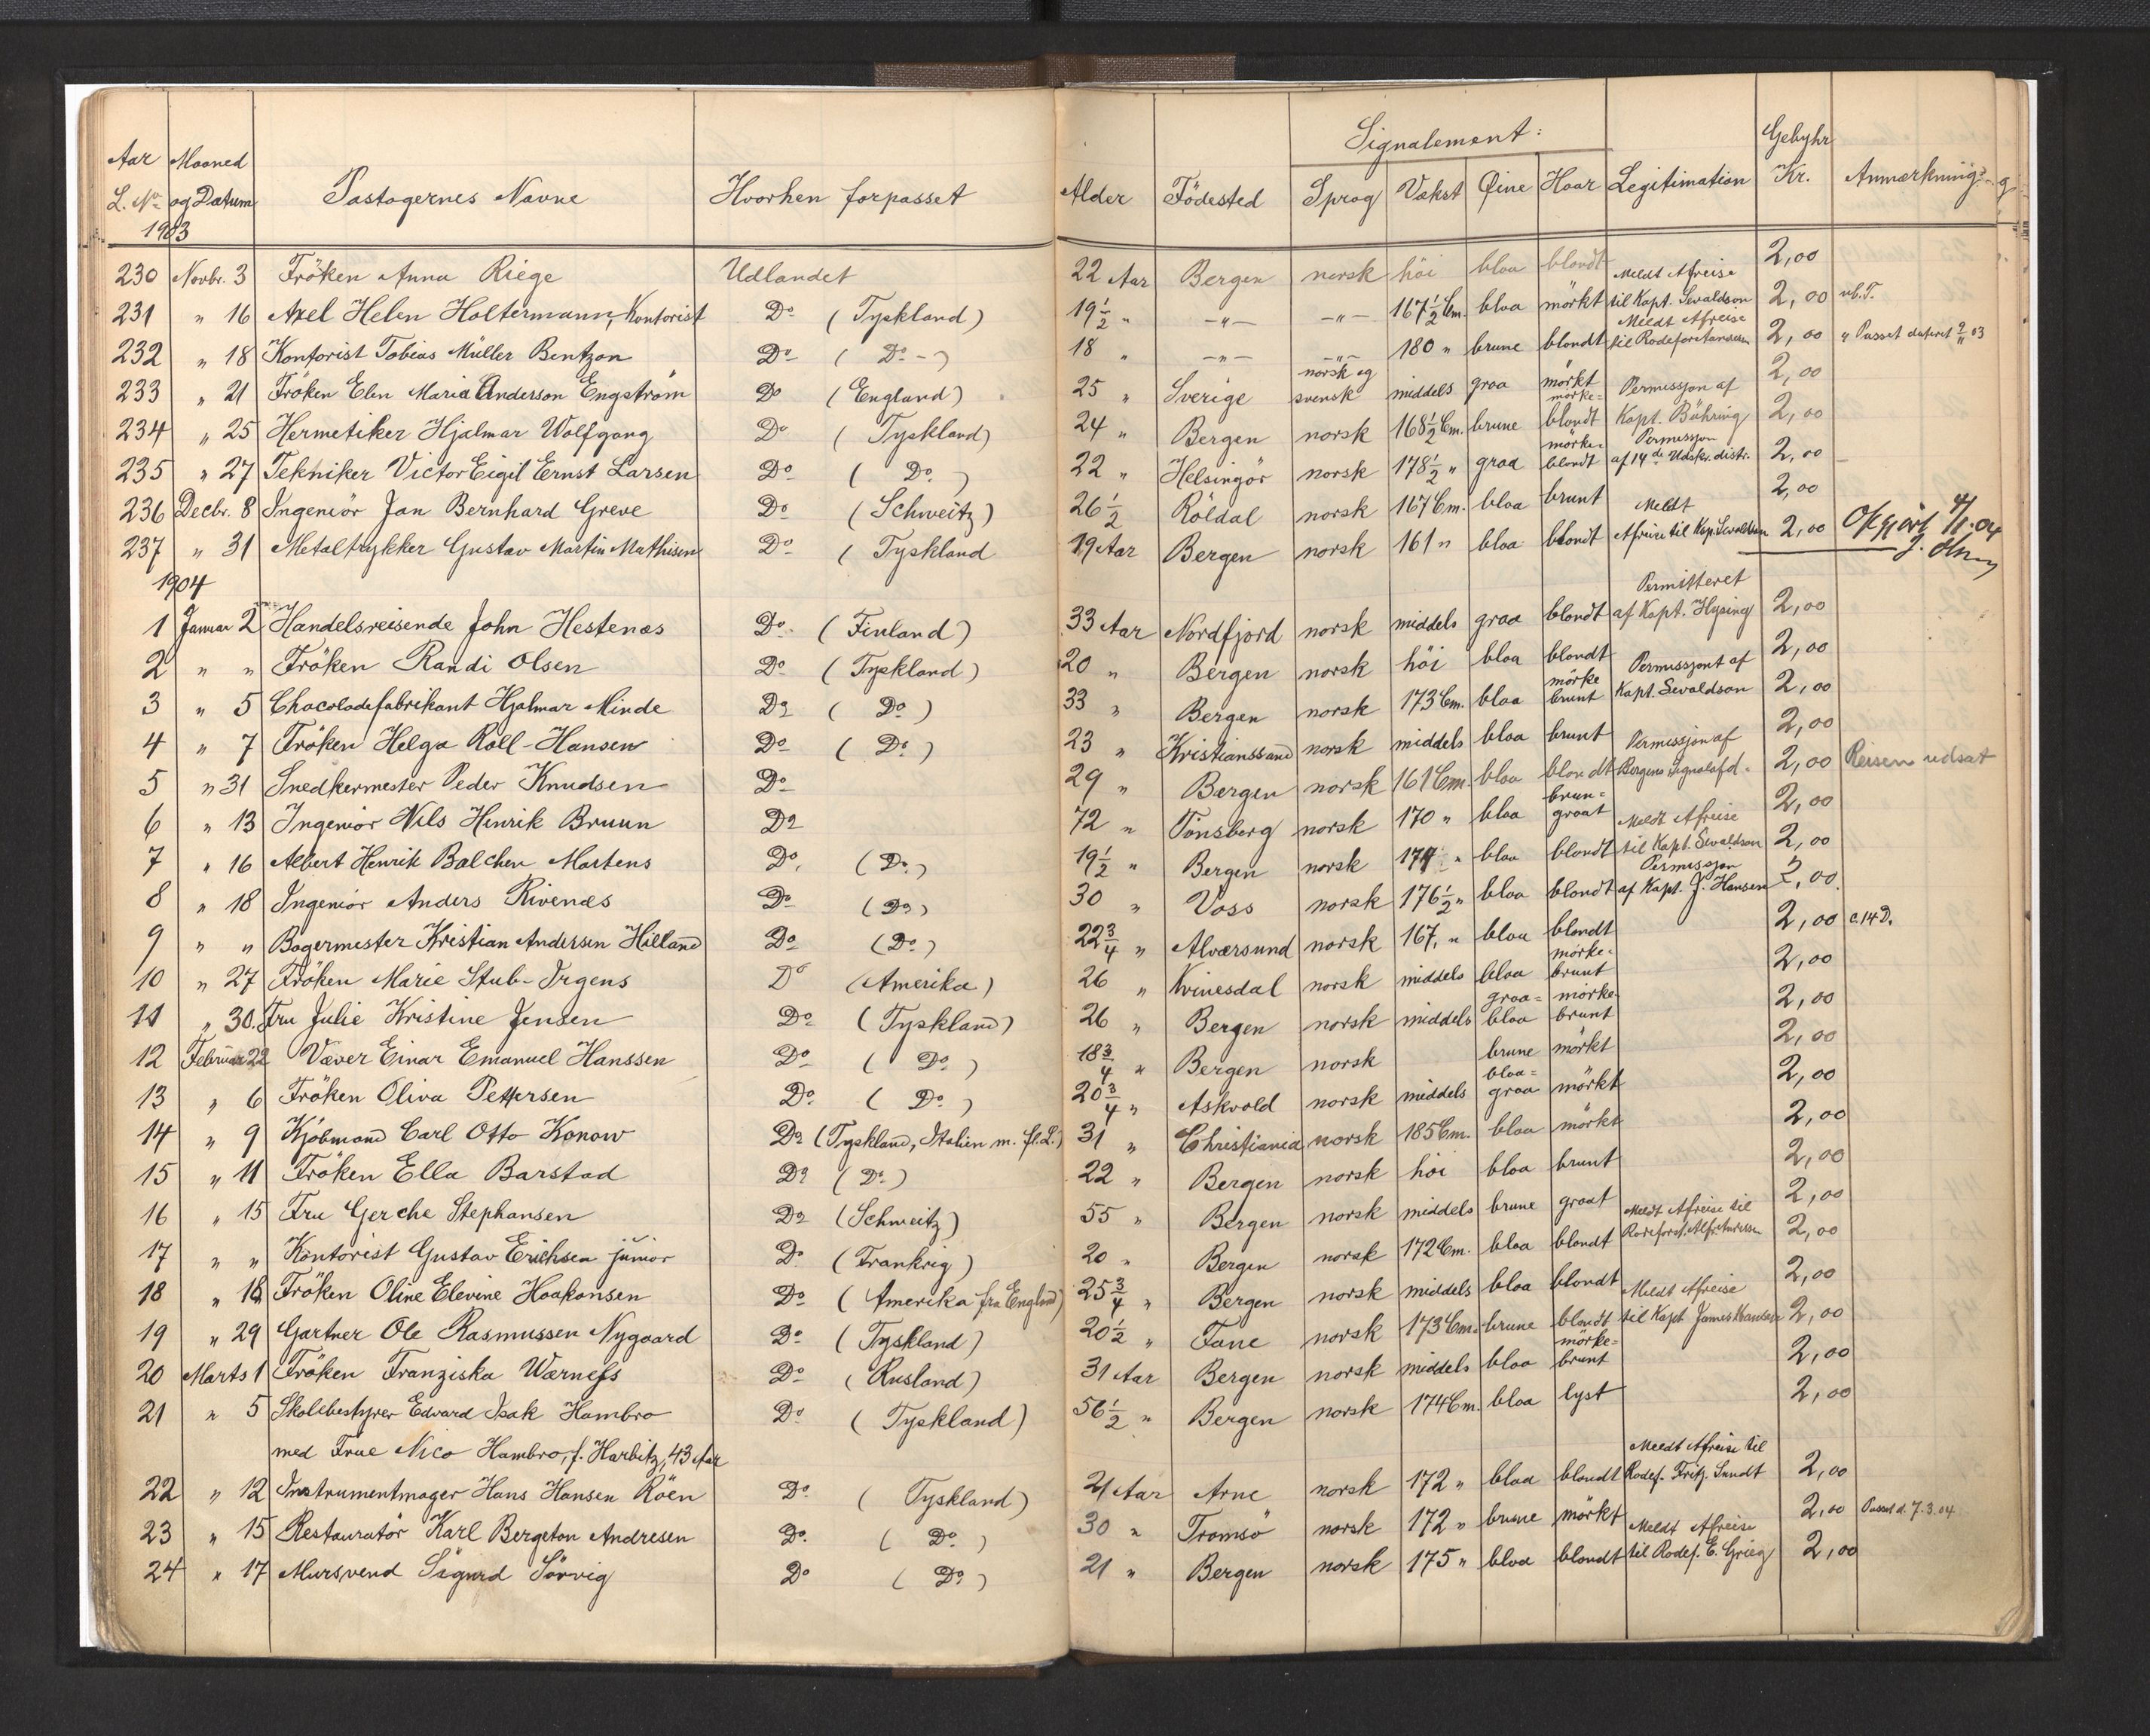 Signalement: Gebyhr
Aar Maaned
L. No og Datum Pastagernes Navne Hvorhen forpasset Alder Födested Sprog Vakst Øine Haar Legitimation Kr. Anmærkning
1903
230 Novbr. 3 Fröken Anna Riege Udlandet 22 Aar Bergen norsk höi blaa blondt 2,00
231 " 16 Axel Helen Holtermann, Kontorist Do (Tyskland) 19 1/2 " -"- -"- 167 1/2 Cm. blaa mörkt Meldt Afreise til Kapt. Sevaldson 2,00
232 " 18 Kontorist Tobias Müller Bentzon Do (Do-) 18 " -"- -"- 180 " brune blondt Meldt Afreise til 2,00 " Passet dateret 9/11 03
233 " 21 Fröken Elen Maria Anderson Engström Do (England) 25 " Sverige norsk og svensk middels graa mörkt 2,00
234 " 25 Hermetiker Hjalmar Wolfgang Do (Tyskland) 24 " Bergen norsk 168 1/2 Cm. brune mörke= blondt Permissjon af Kapt. Bøhring 2,00
235 " 27 Tekniker Victor Eigil Ernst Larsen Do (Do) 22 " Helsingör norsk 178 1/2 " graa mörke= blondt Permissjon af 14de Udskr. distr. 2,00
236 Decbr. 8 Ingeniör Jan Bernhard Greve Do (Schweitz) 26 1/2 Röldal norsk 167 Cm. blaa brunt 2,00
237 " 31 Metaltrykker Gustav Martin Mathisen Do (Tyskland 19 Aar Bergen norsk 161 " blaa blondt Meldt Afreise til Kap. Sevaldsen 2,00 Opgjört 4/1.04
1904
1 Januar 2 Handelsreisende John Hestenæs Do (Finland) 33 Aar Nordfjord norsk middels graa blondt Permitteret af Kapt. Hysing 2,00
2 " " Fröken Randi Olsen Do (Tyskland) 20 " Bergen norsk höi blaa blondt 2,00
3 " 5 Chocoladefabrikant Hjalmar Minde Do (Do) 33 " Bergen norsk 173 Cm. blaa mörke brunt Permissjont af Kapt. Sevaldson 2,00
4 " 7 Fröken Helga Roll-Hansen Do (Do) 23 " Kristianssand norsk middels blaa brunt 2,00
5 " 31 Snedkermester Peder Knudsen Do 29 " Bergen norsk 161 Cm. blaa blondt Permissjon af Bergens Signalafd. 2,00 Reisen udsat
6 " 13 Ingeniör Nils Henrik Bruun Do 72 " Tönsberg norsk 170 " blaa brun= graat 2,00
7 " 16 Albert Henrik Balchen Martens Do. (Do) 19 1/2 " Bergen norsk 174 " blaa blondt Meldt Afreise til Kapt. Sevaldson 2,00
8 " 18 Ingeniör Anders Rivenæs Do (Do) 30 " Voss norsk 176 1/2 " blaa blondt Permissjon af Kapt. J. Hansen 2,00
9 " " Bagermester Kristian Andersen Hilland Do (Do) 22 3/4 " Alværsund norsk 167, " blaa blondt 2,00 c.14 D.
10 " 27 Fröken Marie Stub-Irgens Do (Amerika) 26 " Kvinesdal norsk middels blaa mörke= brunt 2,00
11 " 30. Fru Julie Kristine Jensen Do (Tyskland) 26 " Bergen norsk middels graa= blaa mörke= brunt 2,00
12 Februar 22 Væver Einar Emanuel Hanssen Do (Do) 18 3/4 " Bergen norsk brune mörkt 2,00
13 " 6 Fröken Oliva Pettersen Do (Do) 20 3/4 " Askvold norsk middels blaa= graa mörkt 2,00
14 " 9 Kjöbmand Carl Otto Konow Do (Tyskland, Italien m. fl. L.) 31 " Christiania norsk 185 Cm. blaa mörkt 2,00
15 " 11 Fröken Ella Barstad Do (Do) 22 " Bergen norsk höi blaa brunt 2,00
16 " 15 Fru Gerche Stephansen Do (Schweitz) 55 " Bergen norsk middels brune graat 2,00
17 " " Kontorist Gustav Erichsen junior Do (Frankrig) 20 " Bergen norsk 172 Cm. blaa blondt Meldt Afreise til 2,00
18 " 18 Fröken Oline Elevine Haakonsen Do (Amerika fra England) 25 3/4 " Bergen norsk middels blaa blondt 2,00
19 " 29 Gartner Ole Rasmussen Nygaard Do (Tyskland) 20 1/2 " Fane norsk 173 Cm. brune blondt Meldt Afreise til Kapt James Hansen 2,00
20 Marts 1 Fröken Franziska Warness Do (Rusland) 31 Aar Bergen norsk middels blaa mörke= brunt 2,00
21 " 5 Skolebestyrer Edvard Isak Hambro Do (Tyskland) 56 1/2 " Bergen norsk 174 Cm. blaa lyst 2,00
med Frue Nico Hambro, f. Harbitz, 43 Aar
22 " 12 Instrumentmager Hans Hansen Röen Do (Tyskland) 21 Aar Arne norsk 172 " blaa blondt Meldt Afreise til Rodef. Fritz Sundt 2,00
23 " 15 Restauratör Karl Bergeton Andresen Do. (Do) 30 " Tromsö norsk 172 " brune mörkt 2,00 Passet d. 7.3.04
24 " 17 Mursvend Sigurd Sörvig Do (Do) 21 " Bergen norsk 175 " blaa blondt Meldt Afreise til Rodef. E. Grieg 2,00